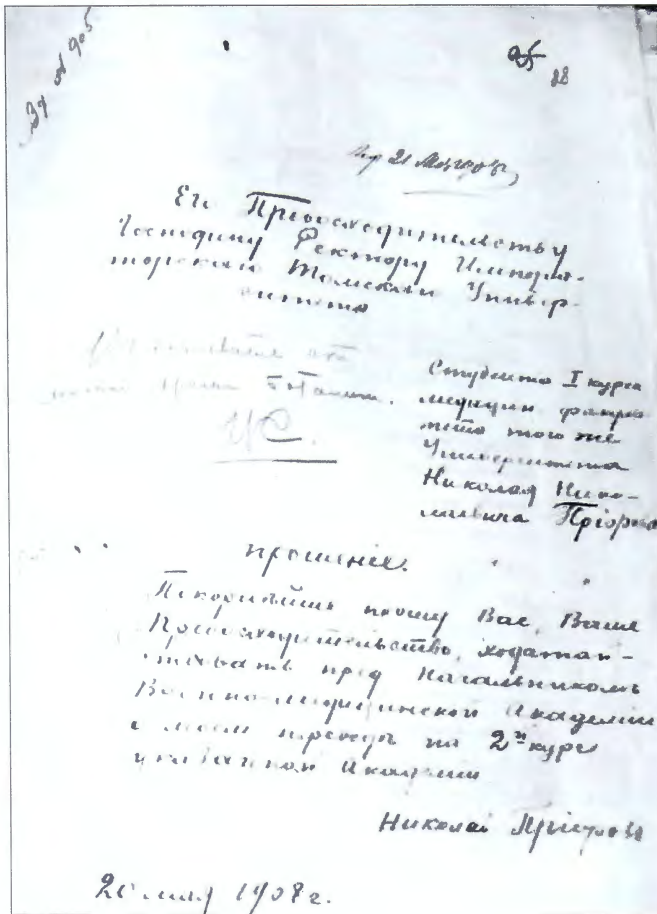 № 905.
88
Его Превосходительству
Господину Ректору Импера-
торскаго Томскаго Универ-
ситета
Студента I курса
медицин факуль
тета того же
Университета
Николая Нико-
лаевича Пріорова
прошеніе.
Покорнѣйше прошу Вас, Ваше
Превосходительство, ходатай-
ствовать пред Начальникомъ
Военно-медицинской Академіи
о моем переводѣ на 2й курс
указанной Академіи
Николай Пріоровъ
20 мая 1908 г.